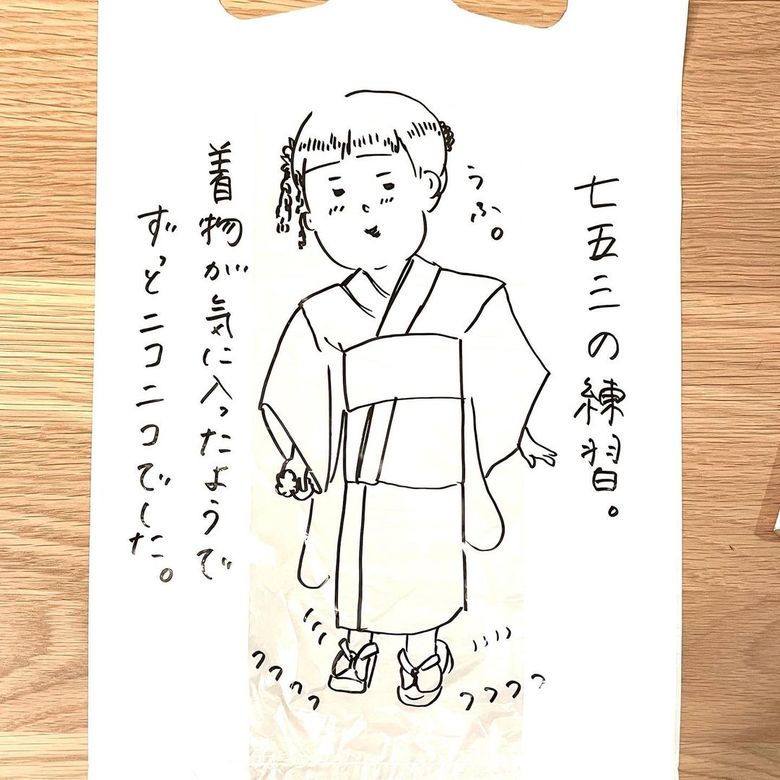 七五三の練習。
うふ。
着物が気に入ったようで
ずっとニコニコでした。